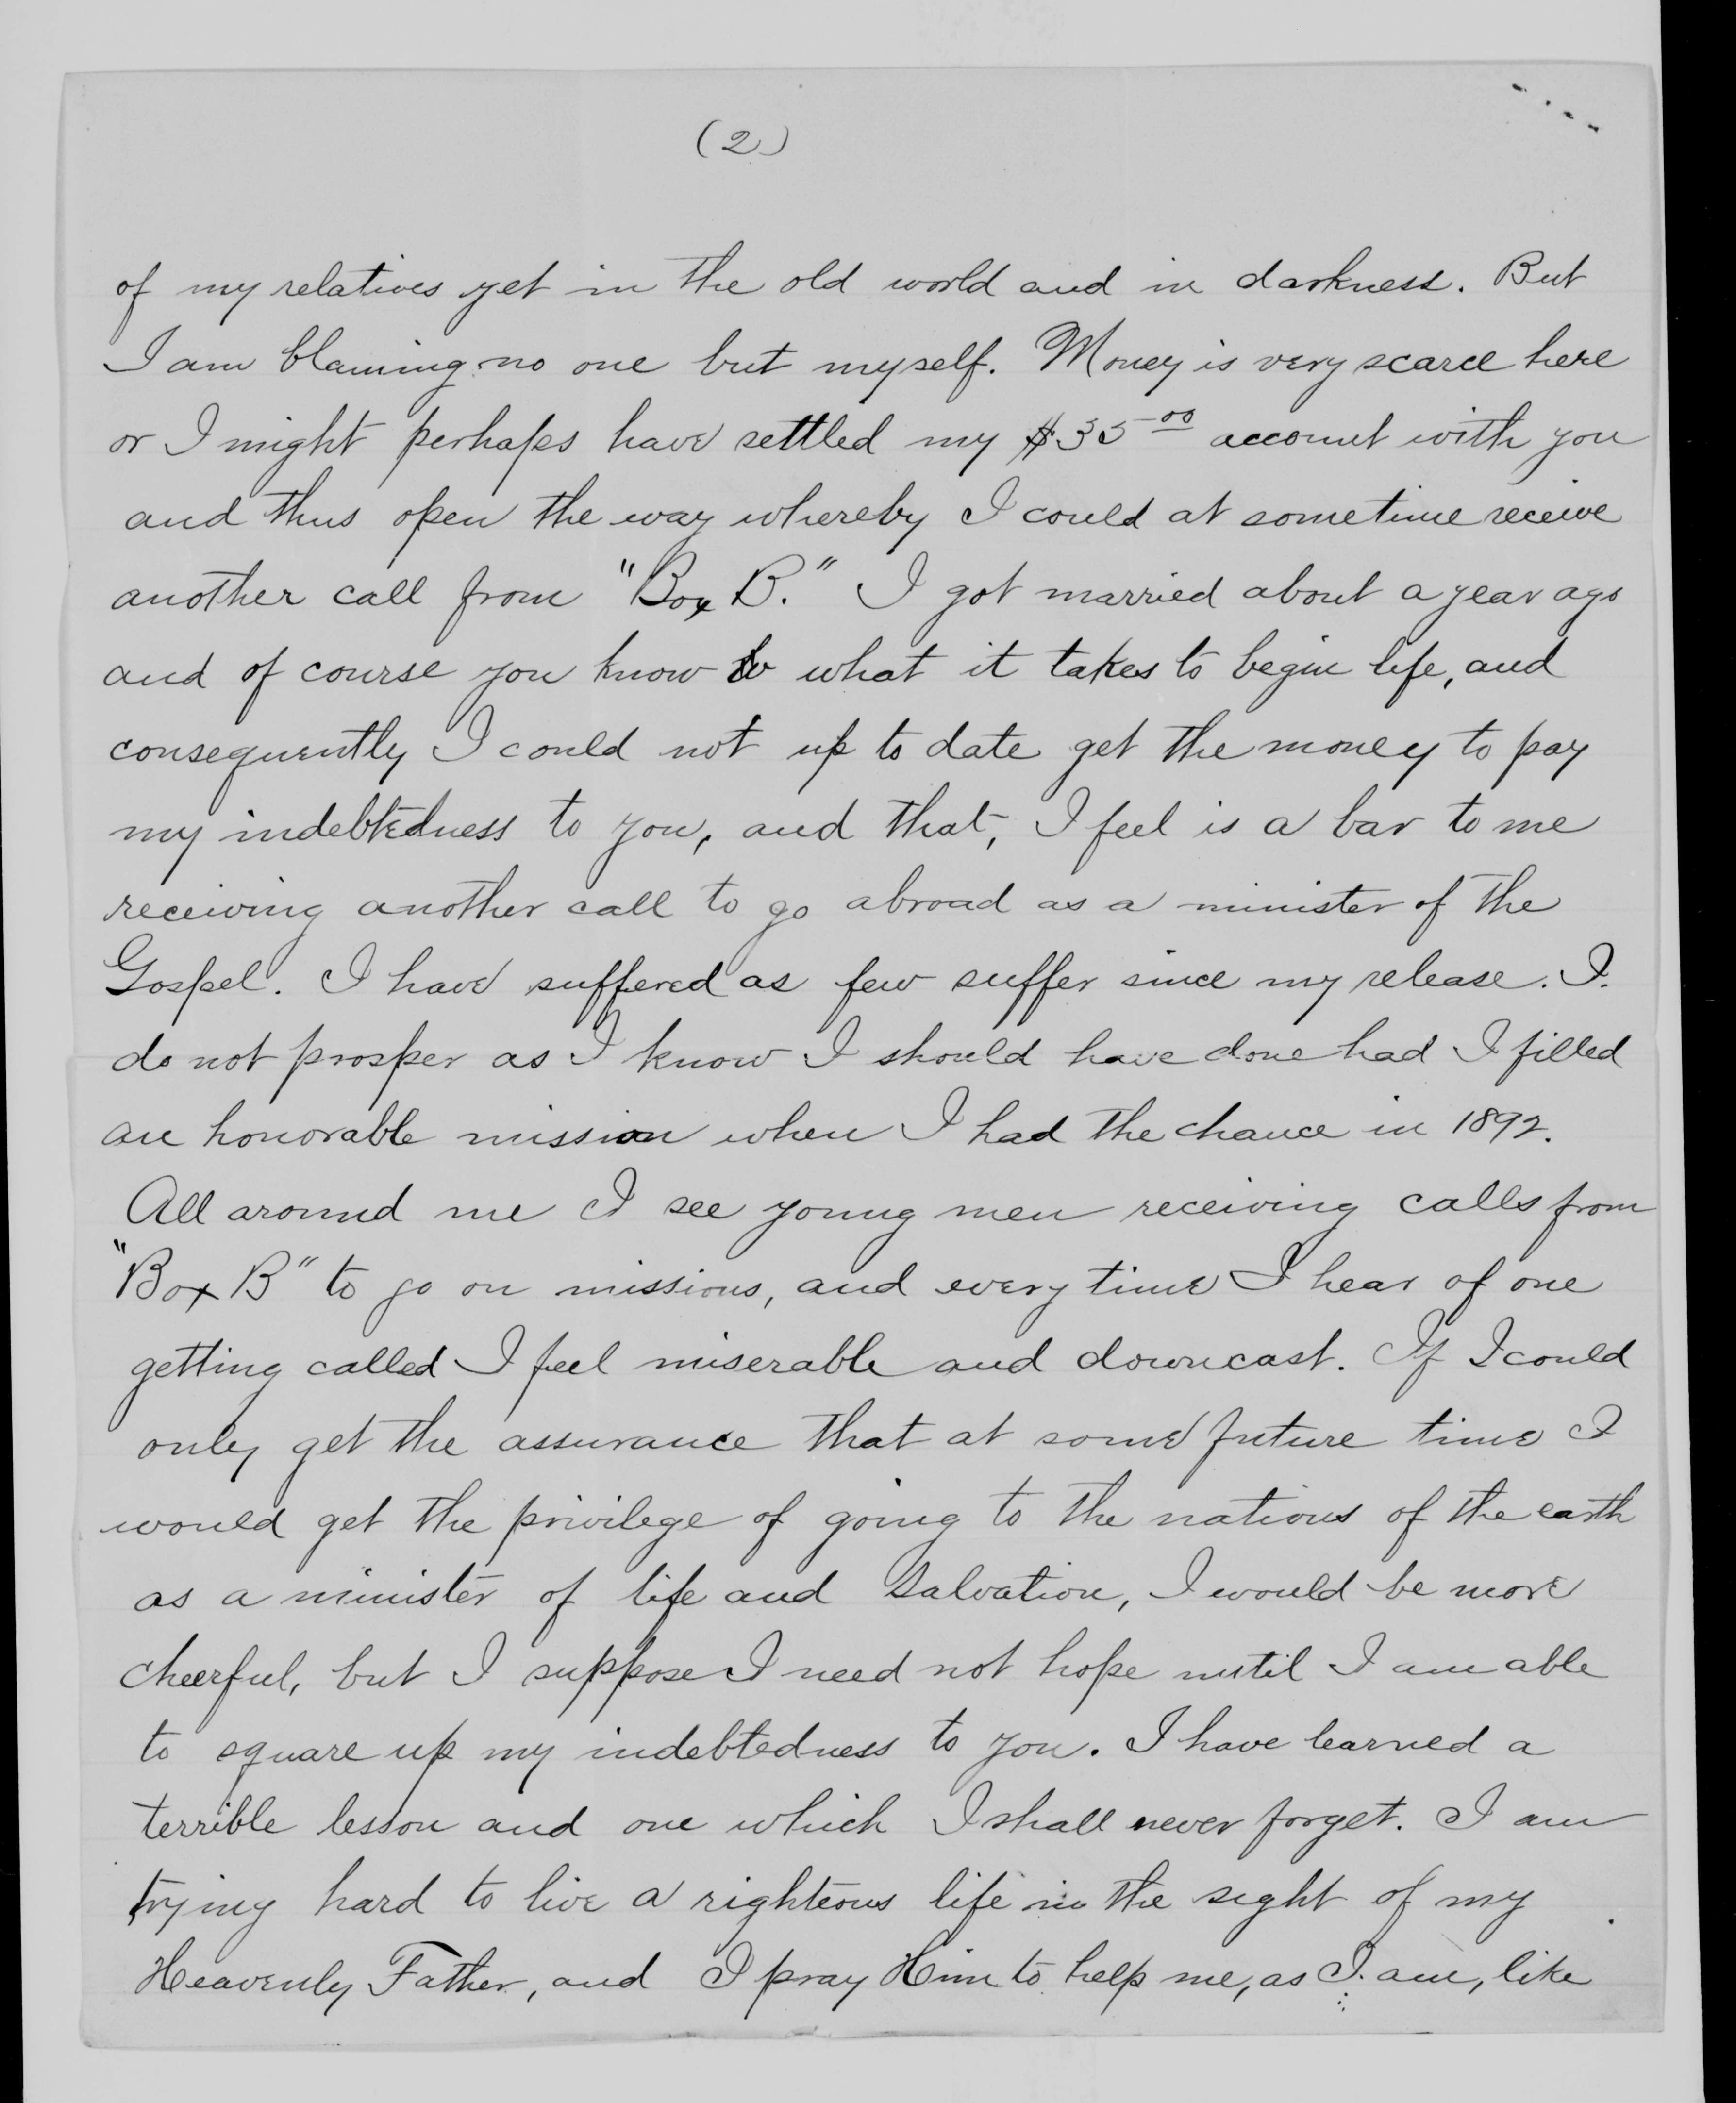 (2)
of my relatives yet in the old world and in darkness. But
I am blaming no one but myself. Money is very scarce here
or I might perhaps have settled my $35 00 account with you
and thus open the way whereby I could at sometime receive
another call from "Box B." I got married about a year ago
and of course you know what it takes to begin life, and
consequently I could not up to date get the money to pay
my indebtedness to you, and that, I feel is a bar to me
receiving another call to go abroad as a minister of the
Gospel. I have suffered as few suffer since my release. I
do not prosper as I know I should have done had I filled
an honorable mission when I had the chance in 1892.
All around me I see young men receiving calls from
"Box B" to go on missions, and every time I hear of one
getting called I feel miserable and downcast. If I could
only get the assurance that at some future time I
would get the privilege of going to the nations of the earth
as a minister of life and salvation, I would be more
cheerful, but I suppose I need not hope until I am able
to square up my indebtedness to you. I have learned a
terrible lesson and one which I shall never forget. I am
trying hard to live a righteous life in the sight of my
Heavenly Father, and I pray Him to help me, as I am, like